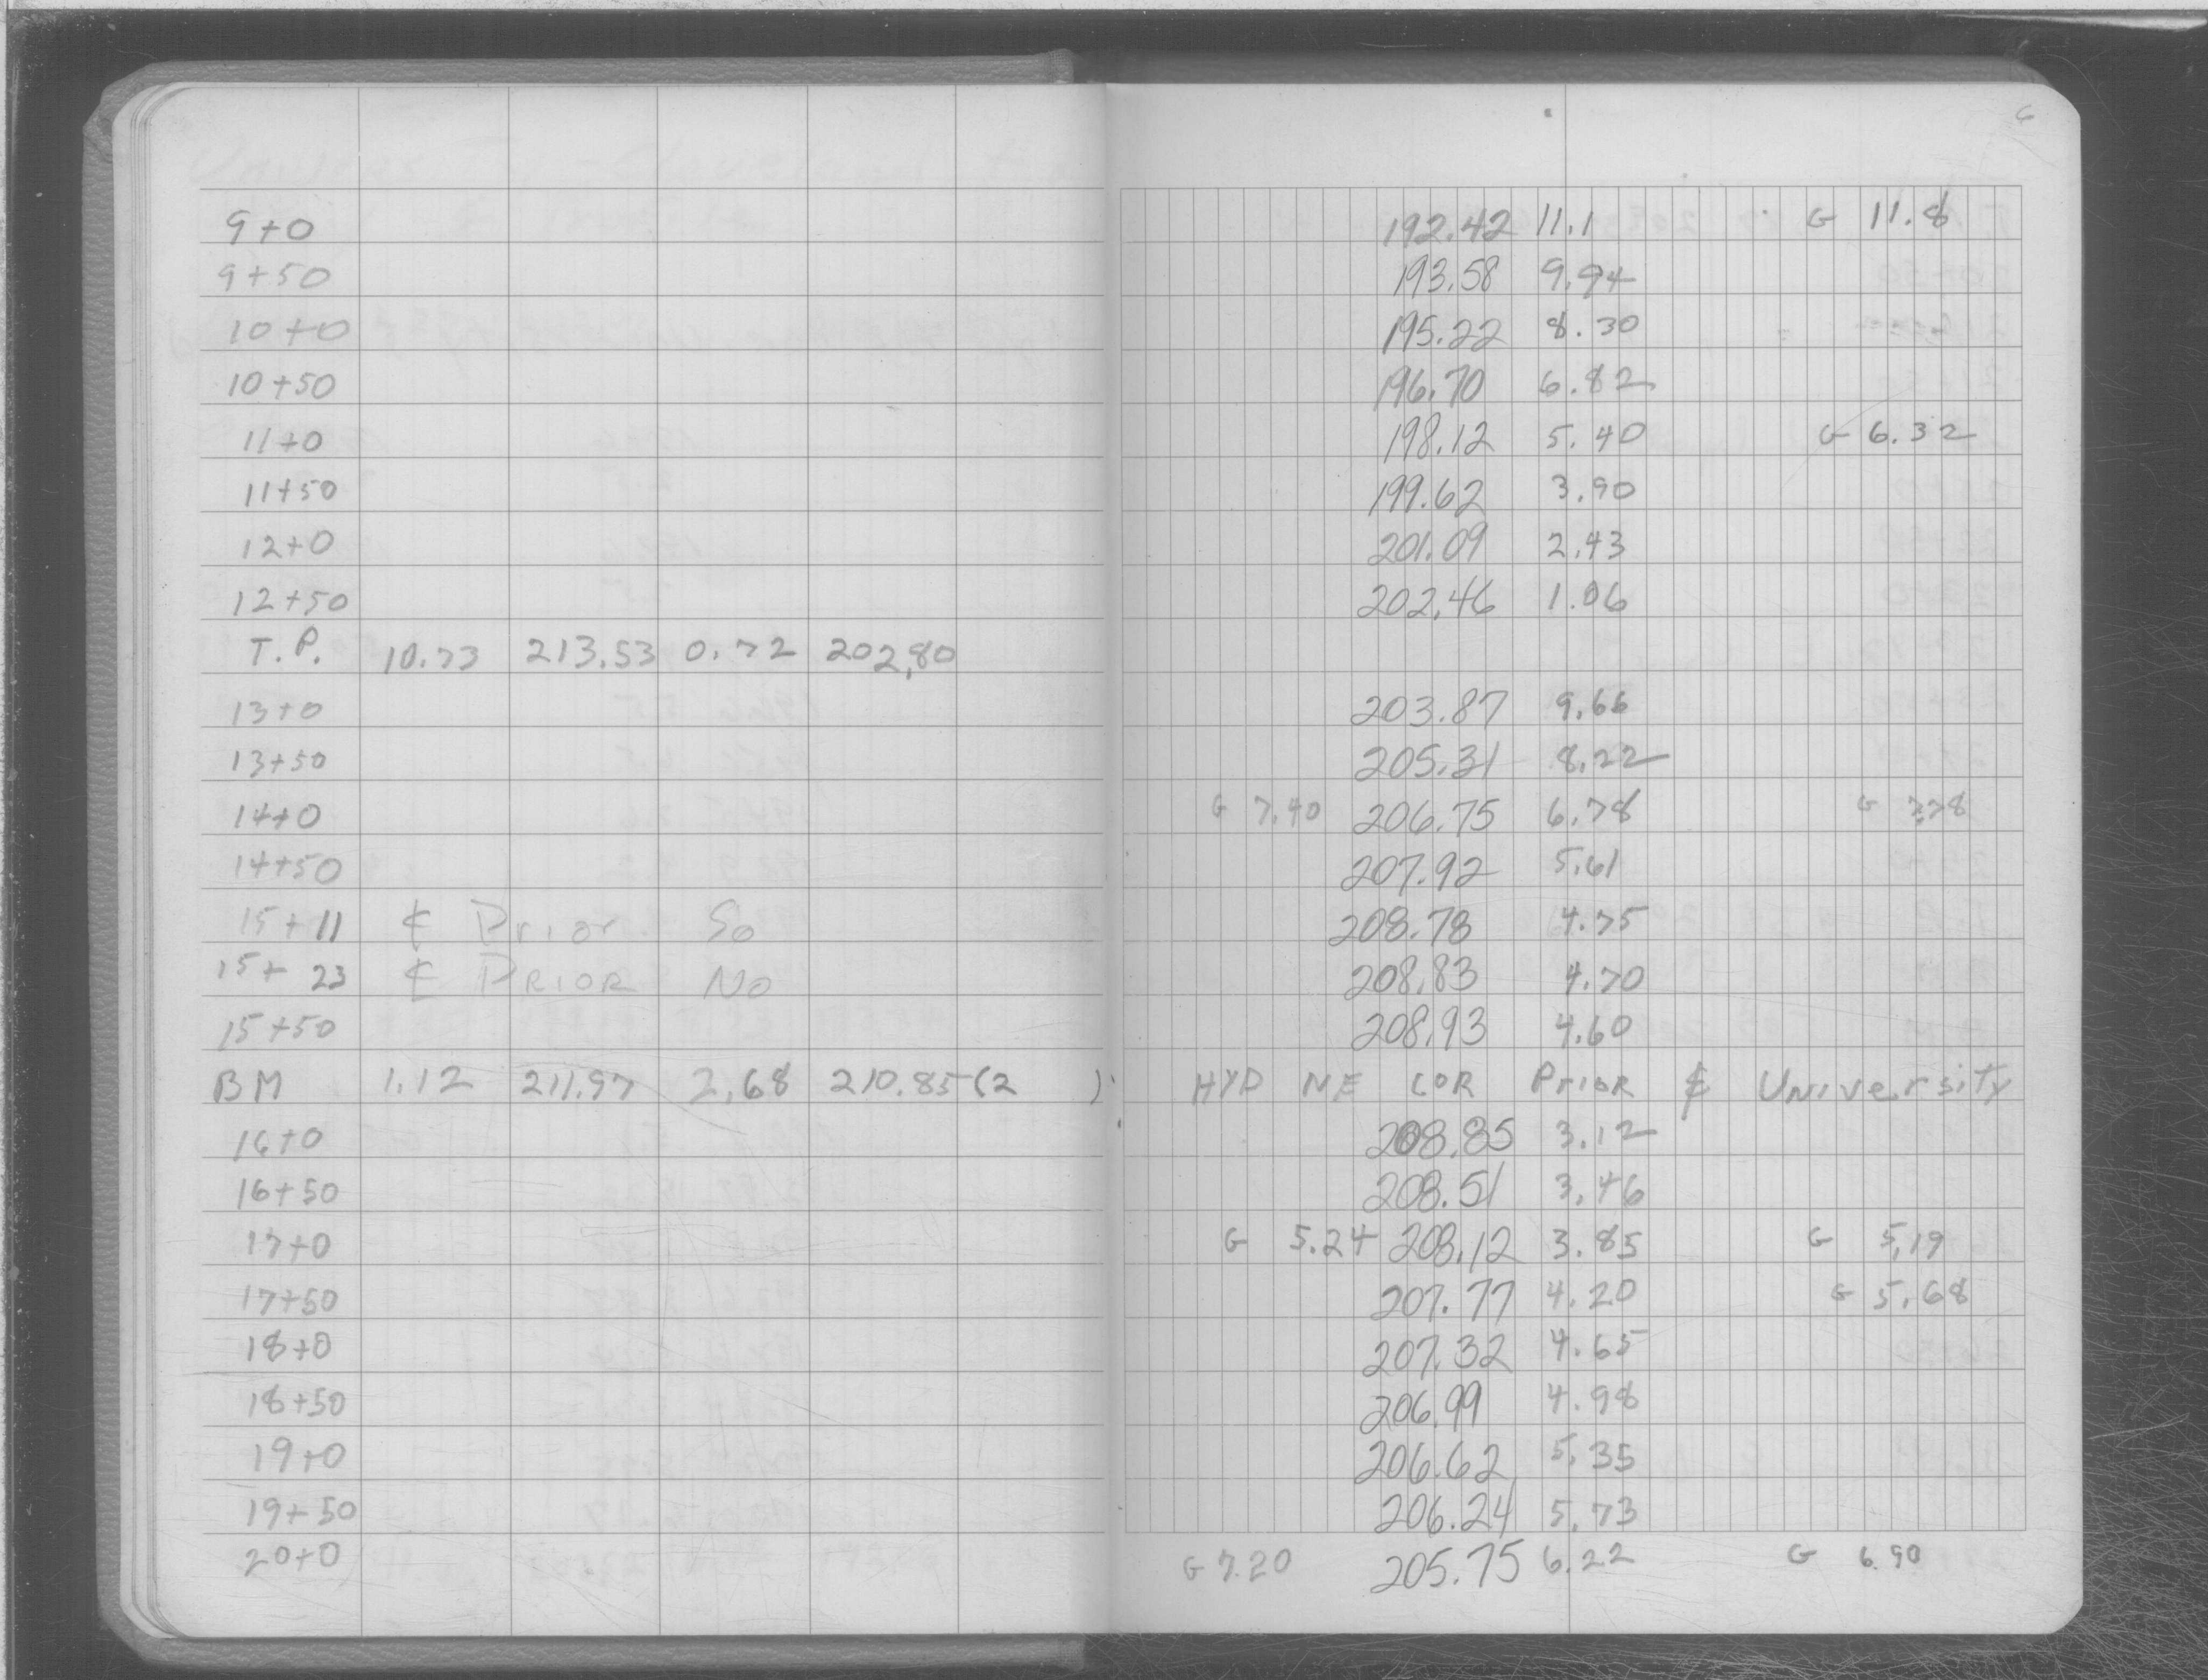 6
9+0 192.42 11.1 G 11.8
9+50 193.58 9.94
10+0 195.22 8.30
10+50 196.70 6.82
11+0 198.12 5.40 G 6.32
11+50 199.62 3.90
12+0 201.09 2.43
12+50 202.46 1.06
T.P. 10.73 213.53 0.72 202.80
13+0 203.87 9.66
13+50 205.31 8.22
14+0 G 7.40 206.75 6.78 G 7.78
14+50 207.92 5.61
15+11 ₵ Prior So 208.78 4.75
15+23 ₵ PRIOR No 208.83 4.70
15+50 208.93 4.60
BM 1.12 211.97 2.68 210.85 (2 ) HYD NE COR PRIOR ₵ UNIVersity
16+0 208.85 3.12
16+50 208.51 3.46
17+0 G 5.24 208.12 3.85 G 5.19
17+50 207.77 4.20 G 5.68
18+0 207.32 4.65
18+50 206.99 4.98
19+0 206.62 5.35
19+50 206.24 5.73
20+0 G 7.20 205.75 6.22 G 6.90